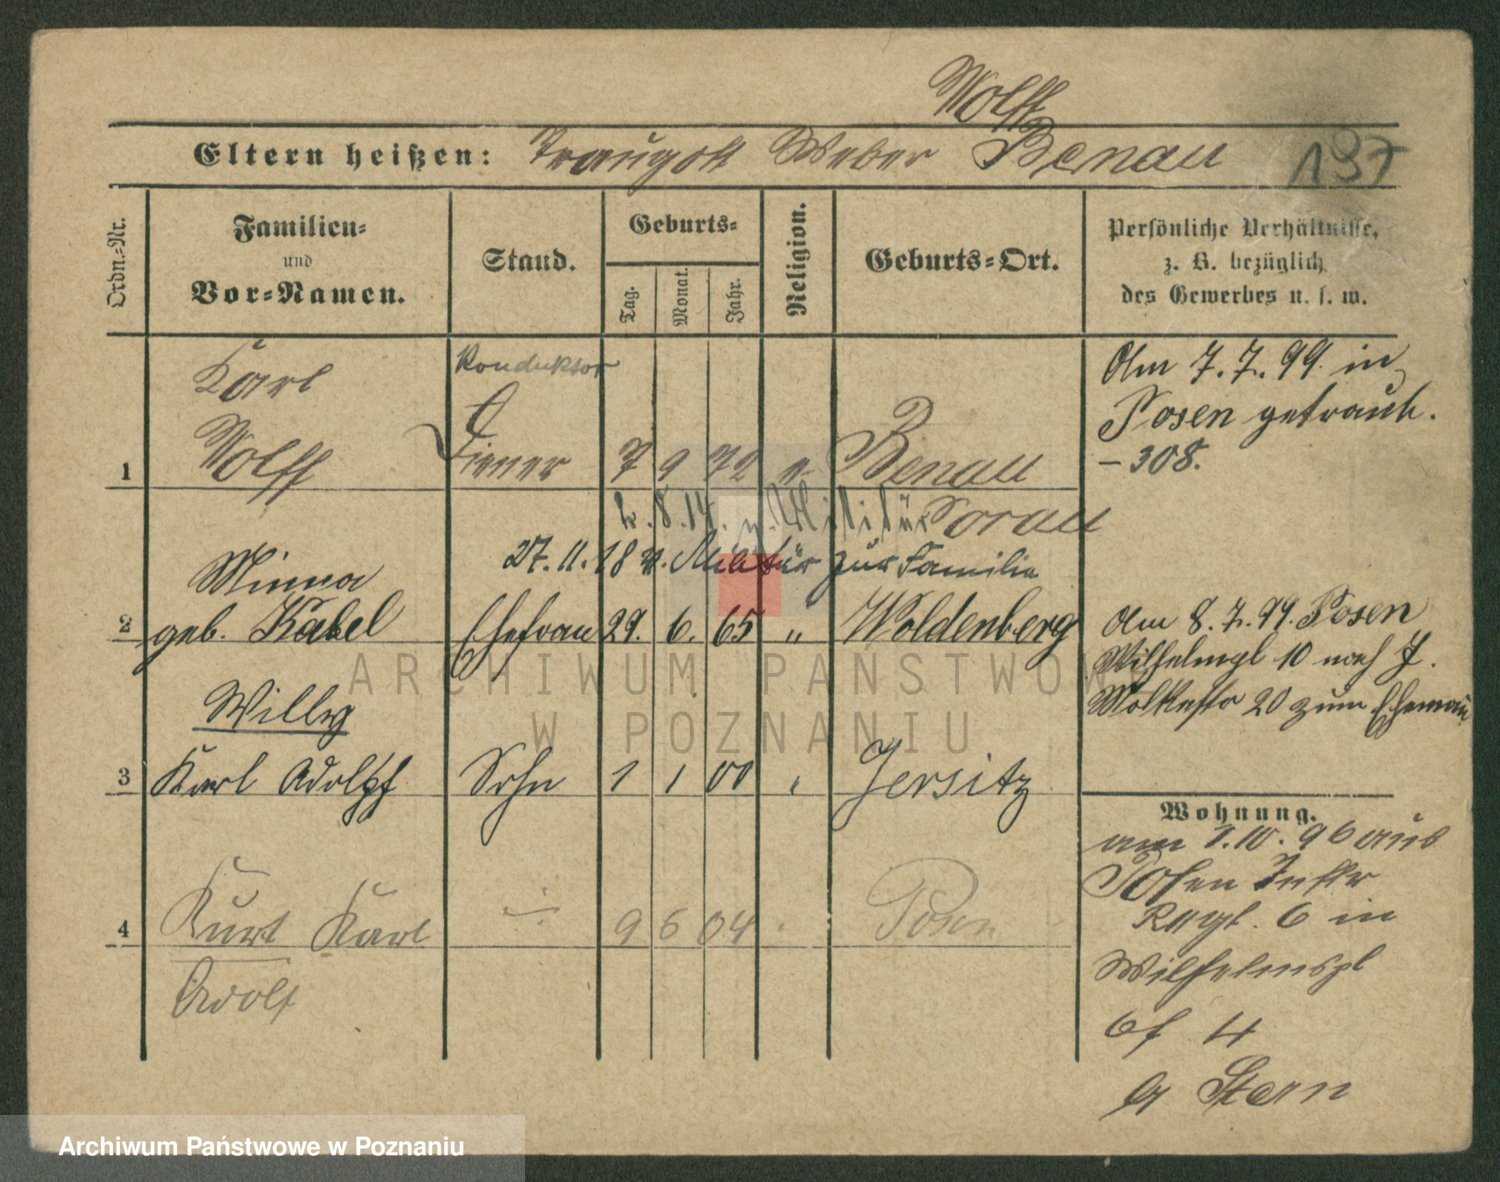 Wolff
Eltern heißen: Traugott Weber Benau 137
Ordn.-Nr.
Familien-
und
Vor-Namen.
Stand.
Geburts-
Tag.
Monat.
Jahr.
Religion.
Geburts-Ort.
Persönliche Verhältnisse,
z. B. bezüglich
des Gewerbes u. s. w.
Karl Konduktor
1 Wolff Diener 7 9 72 Benau
Sorau
2. 8. 14. z. Militär
27.11.18 v. Militär zur Familie
Am 7.7.99. in
Posen getraut.
– 308.
Minna
2 geb. Kabel Ehefrau 29. 6. 65 „ Woldenberg
Am 8.7.99. Posen
Wilhelmspl 10 nach J.
Moltkestr 20 zum Ehemann
Willy
3 Karl Adolf Sohn 1 1 00 Jersitz
4 Kurt Karl 9 6 04 Posen
Adolf
Wohnung.
am 1.10.96 aus
Posen Inftr
Regt. 6 in
Wilhelmspl
4
b Stern
ARCHIWUM PAŃSTWOWE
W POZNANIU
Archiwum Państwowe w Poznaniu